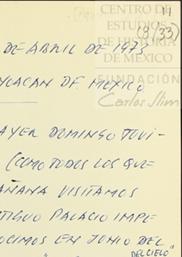 CENTRO DE
ESTUDIOS
DE HISTORIA
DE MÉXICO
FUNDACIÓN
Carlos Slim
11
(9/33)
DE ABRIL DE 1973
YOACAN DF. MEXICO
AYER DOMINGO TUVI-
(COMO TODOS LOS QUE
AÑANA VISITAMOS
TIGUO PALACIO IMPE
OCIMOS EN JUNIO DEL
DEL CIELO"